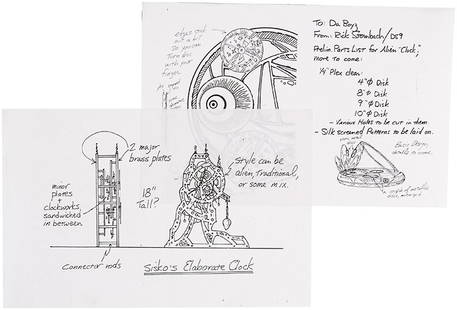 edges stick
out a bit
so you can
Turn disc
with your
finger.
To: Da Boyz
From: Rick Sternbach/DS9
Prelim Parts List for Alien "Clock,"
more to come:
1/4" Plex clear:
4"Φ Disk
8"Φ Disk
9"Φ Disk
10"Φ Disk
- Various Holes to be cut in them.
- Silk screened Patterns to be laid on.
Base Design,
details to come.
2 major
brass plates
minor
plates
+
clockworks,
sandwiched
in between.
Connector rods
18"
Tall?
Style can be
alien, traditional,
or some mix.
Sisko's Elaborate Clock